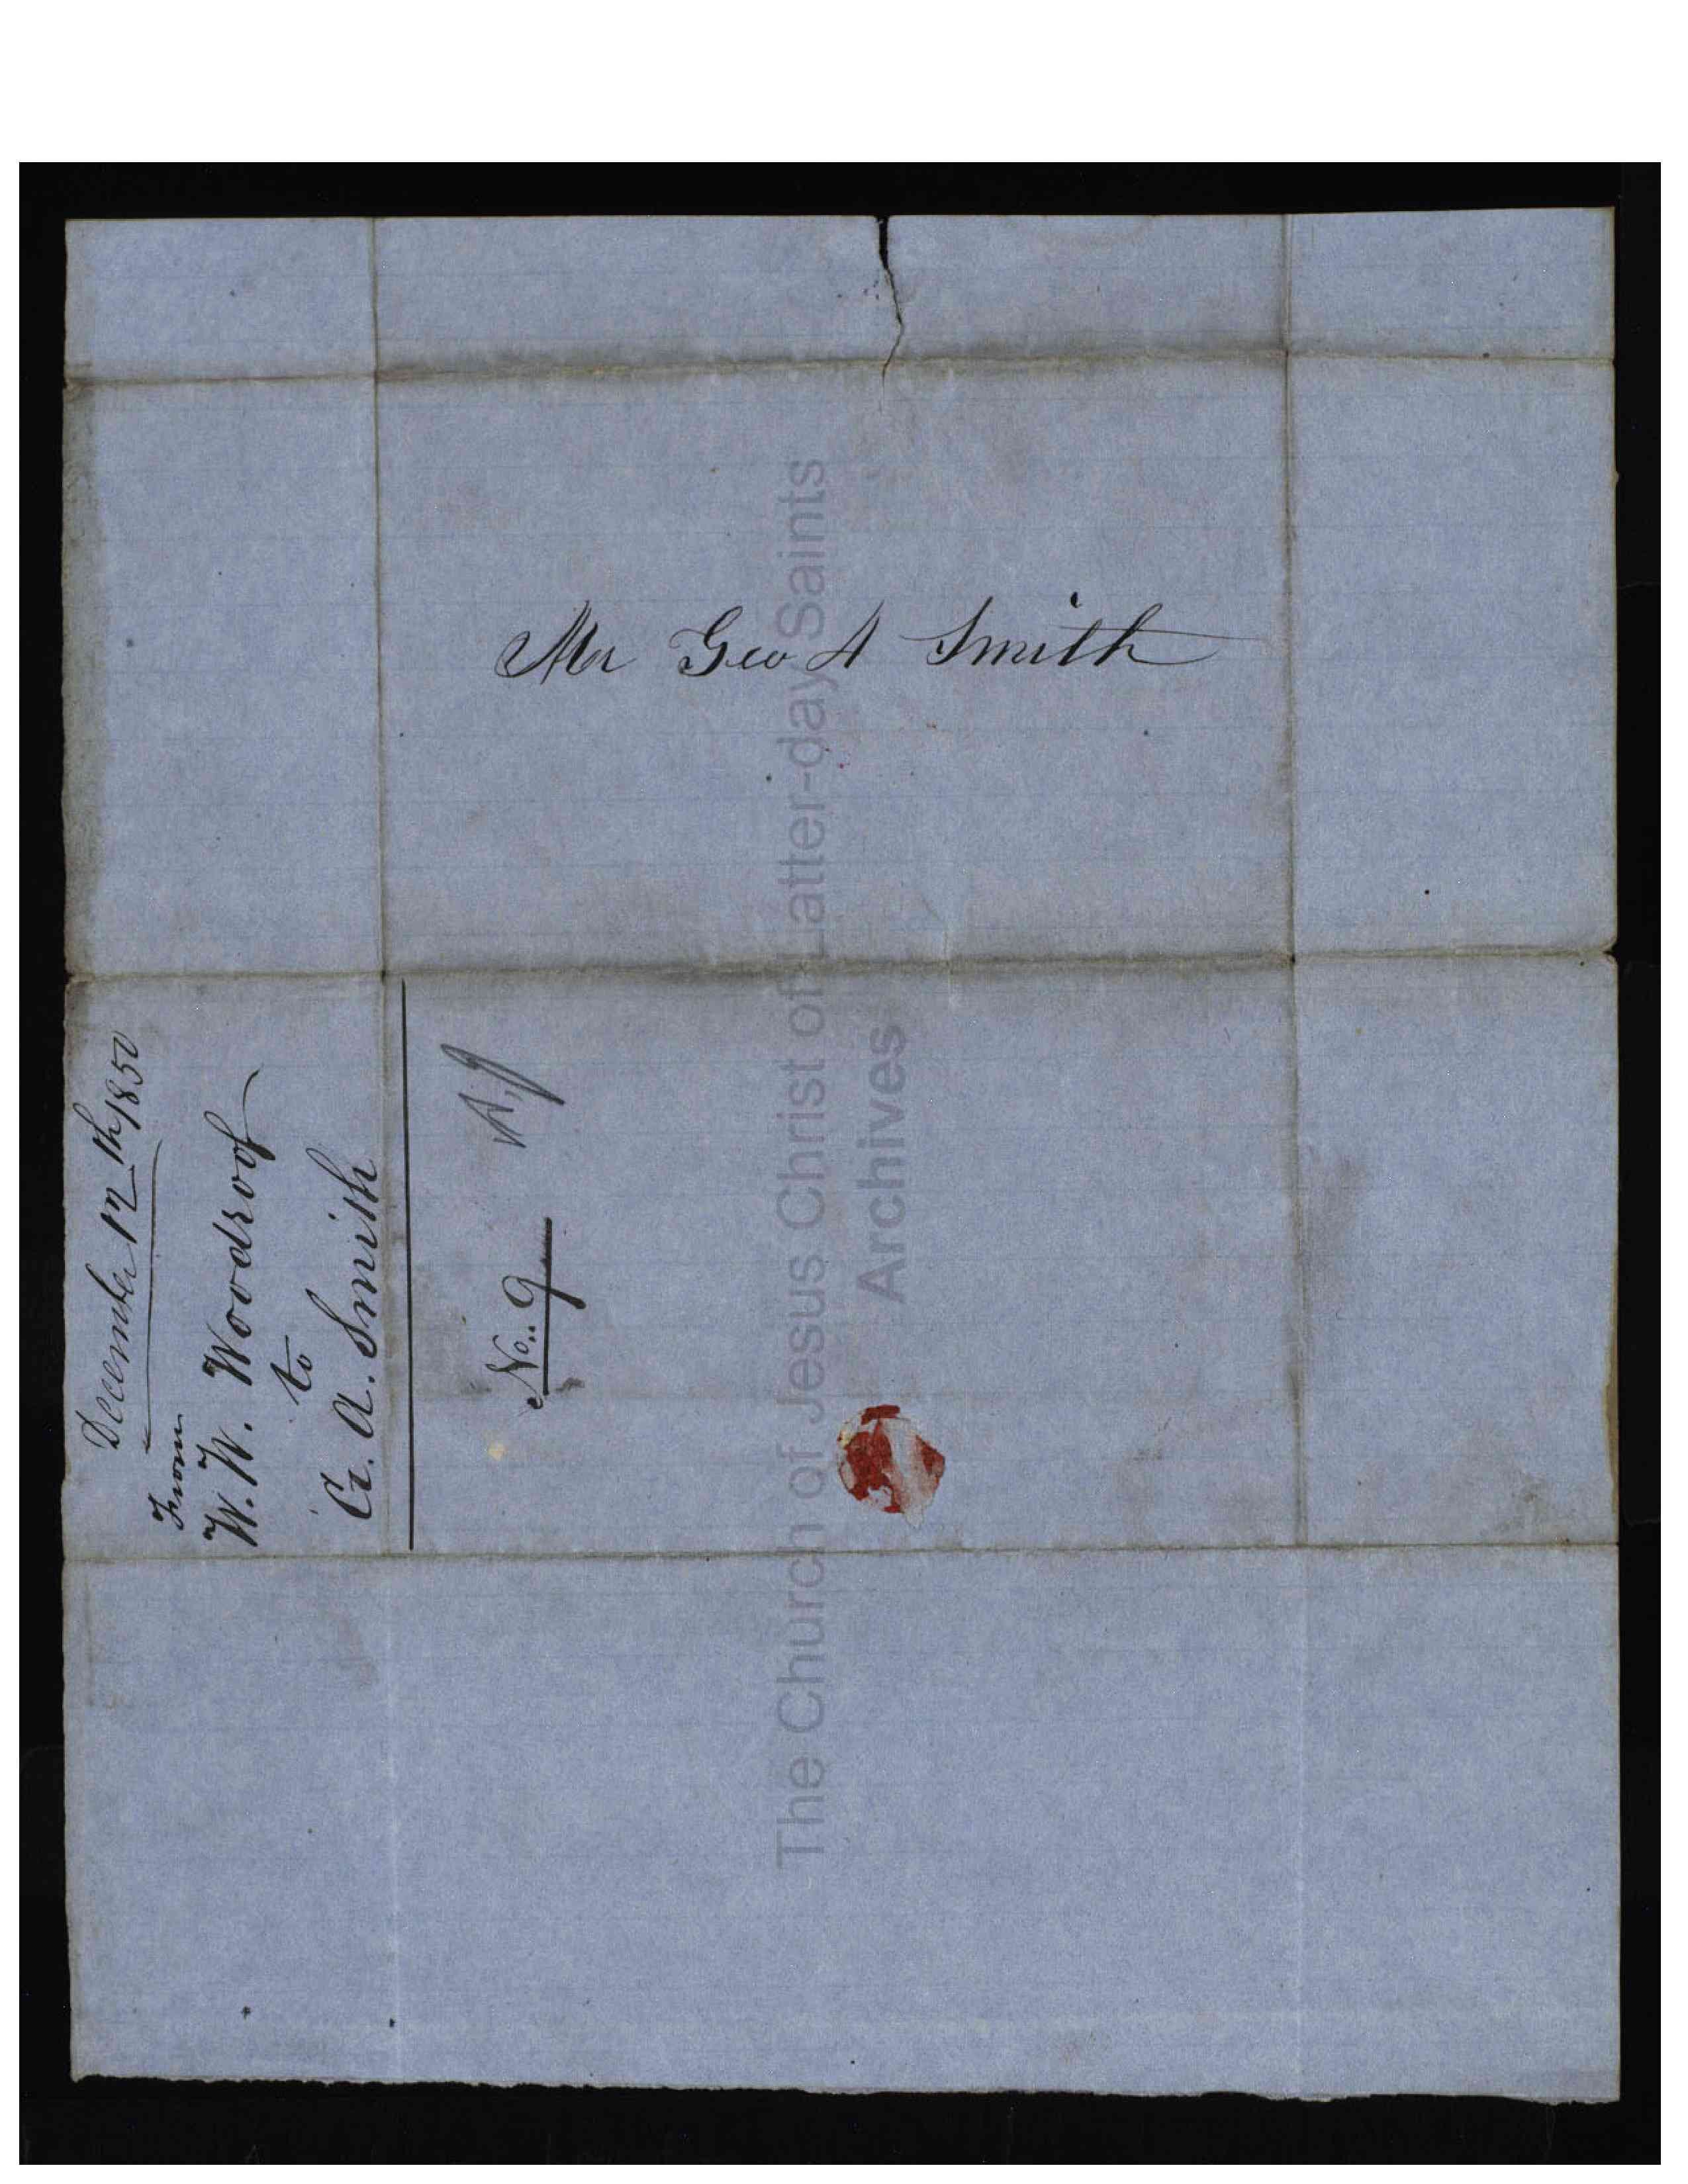 Mr Geo A Smith
December 17th/1850
From
W. W. Woodroof
to
G. A. Smith
No.. 9
The Church of Jesus Christ of Latter-day Saints
Archives